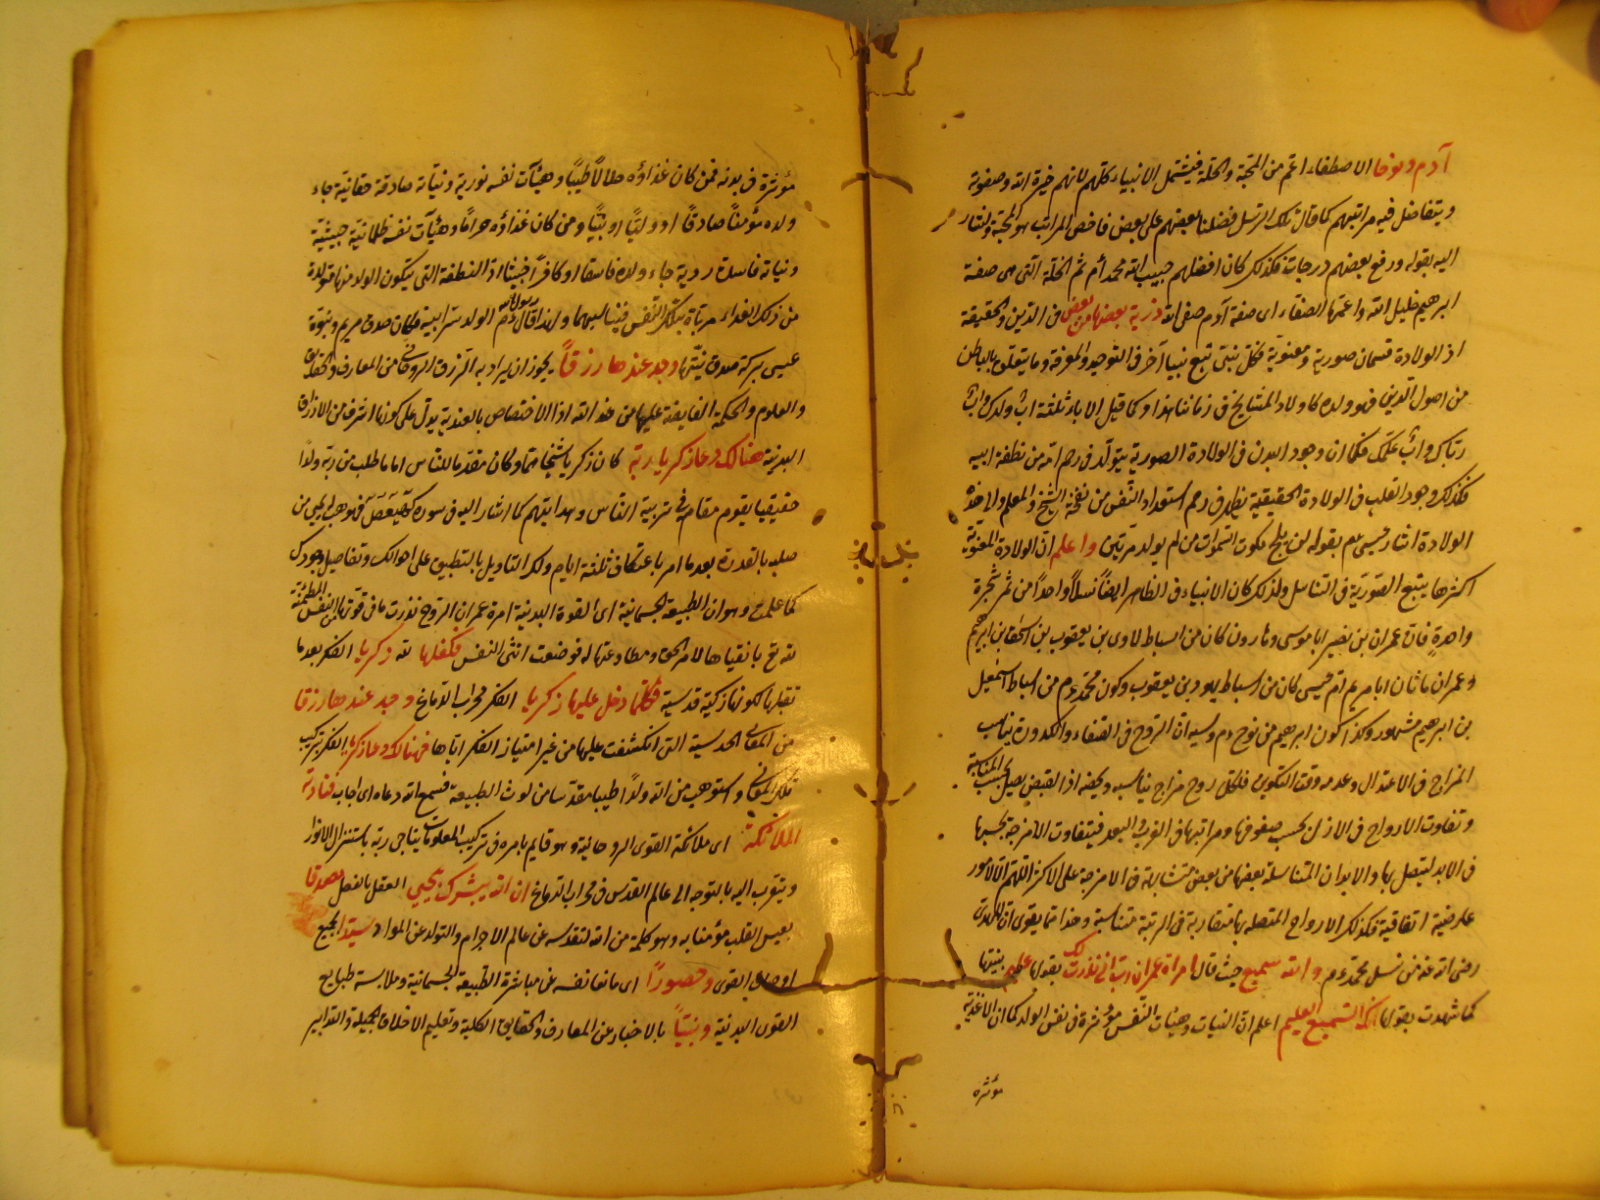 آدم ونوحا الاصطفاء اعم من المحبة والخلة فيشتمل الانبياء كلهم لانهم خيرة الله وصفوته
ويتفاضل فيه مراتبهم كما قال تلك الرسل فضلنا بعضهم على بعض فاخص المراتب هو المحبة والمشار
اليه بقوله ورفع بعضهم درجات فكذلك كان افضلهم حبيب الله محمد ثم الخلة التى هى صفة
ابرهيم خليل الله واعمها الصفاء اى صفة آدم صفى الله ذرية بعضها من بعض فى الدين والحقيقة
اذ الولادة قسمان صورية ومعنوية فكل نبى تبع نبيا آخر فى التوحيد والمعرفة وما يتعلق بالباطن
من اصول الدين فهو ولده كاولاد المشايخ فى زماننا هذا وكما قيل الاباء ثلثة اب ولدك واب
رباك واب علمك فكما ان وجود البدن فى الولادة الصورية يتولد فى رحم امه من نطفة ابيه
فكذلك وجود القلب فى الولادة الحقيقية يظهر فى رحم استعداد النفس من نفخة الشيخ والمعلم والى هذه
الولادة اشار عيسى عم بقوله لن يلج ملكوت السموات من لم يولد مرتين واعلم ان الولادة المعنوية
اكثرها يتبع الصورية فى التناسل ولذلك كان الانبياء فى الظاهر ايضا نسلا واحدا من ثمر شجرة
واحدة فان عمران بن يصهر ابا موسى وهارون كان من اسباط لاوى بن يعقوب بن اسحق بن ابرهيم
وعمران بن ماثان ابا مريم ام عيسى كان من اسباط يهود بن يعقوب وكون محمد عم من اسباط اسمعيل
بن ابرهيم مشهور وكذا كون ابرهيم من نوح عم وسببه ان الروح فى الصفاء والكدورة يناسب
المزاج فى الاعتدال وعدمه وقت التكوين فلكل روح مزاج يناسبه ويخصه اذ الفيض يصل بحسب المناسبة
وتفاوت الارواح فى الازل بحسب صفوفها ومراتبها فى القرب والبعد فيتفاوت الامزجة بحسبها
فى الابد ليتصل بها والابدان المتناسلة بعضها من بعض متشابهة فى الامزجة على الاكثر اللهم الا لامور
عارضية اتفاقية فكذلك الارواح المتصلة بها متقاربة فى الرتبة متناسبة وهذا مما يقوى ان المهدى
رضى الله عنه من نسل محمد عم والله سميع حيث قال امراة عمران رب انى نذرت لك بقولها عليم بنيتها
كما شهدت بقولها انك انت السميع العليم اعلم ان النيات وهيئات النفس مؤثرة فى نفس الولد كما ان الاغذية
مؤثرة
مؤثرة فى بدنه فمن كان غذاؤه حلالا طيبا وهيآت نفسه نورية ونياته صادقة حقانية جاء
ولده مؤمنا صادقا او وليا او نبيا ومن كان غذاؤه حراما وهيآت نفسه ظلمانية خبيثة
ونياته فاسدة ردية جاء ولده فاسقا او كافرا خبيثا اذ النطفة التى يتكون الولد منها متولدة
من ذلك الغذاء مرباة بتلك النفس فيناسبهما ولهذا قال رسول الله عم الولد سر ابيه فكان صدق مريم ونبوة
عيسى بركة صدق نيتها وجد عندها رزقا يجوز ان يراد به الرزق الروحانى من المعارف والحقايق
والعلوم والحكمة الفايضة عليها من عند الله اذ الاختصاص بالعندية يدل على كونها اشرف من الارزاق
البدنية هنالك دعا زكريا ربه كان زكريا شيخا هما وكان مقدما للناس اماما طلب من ربه ولدا
حقيقيا يقوم مقامه فى تربية الناس وهدايتهم كما اشار اليه فى سورة كهيعص فوهب له يحيى من
صلبه بالقدرة بعد ما امر باعتكاف ثلثة ايام ولك التاويل بالتطبيق على احوالك وتفاصيل وجودك
كما علمت وهو ان الطبيعة الجسمانية اى القوة البدنية امرة عمران الروح نذرت ما فى قوتها من النفس المطمئنة
لله تعالى بانقيادها لامر الحق ومطاوعتها له فوضعت انثى النفس فكفلها الله زكريا الفكر بعد ما
تقبلها لكونها زكية قدسية فكلما دخل عليها زكريا الفكر محراب الدماغ وجد عندها رزقا
من المعانى الحدسية التى انكشفت عليها من غير امتياز الفكر اياها فهنالك دعا زكريا الفكر بتركيب
تلك المعانى واستوهب من الله ولدا طيبا مقدسا من لوث الطبيعة فسمع الله دعاه اى اجاب فنادته
الملائكة اى ملائكة القوى الروحانية وهو قايم بامره فى تركيب المعلومات يناجى ربه باستنزال الانوار
ويتقرب اليه بالتوجه الى عالم القدس فى محراب الدماغ ان الله يبشرك بيحيى العقل بالفعل مصدقا
بعيسى القلب مؤمنا به وهو كلمة من الله لتقدسه عن عالم الاجرام والتولد عن المواد سيدا لجميع
اوصاف القوى وحصورا اى مانعا نفسه عن مباشرة الطبيعة الجسمانية وملابسة طبايع
القوى البدنية ونبيا بالاخبار عن المعارف والحقايق الكلية وتعليم الاخلاق الجميلة والتدابير